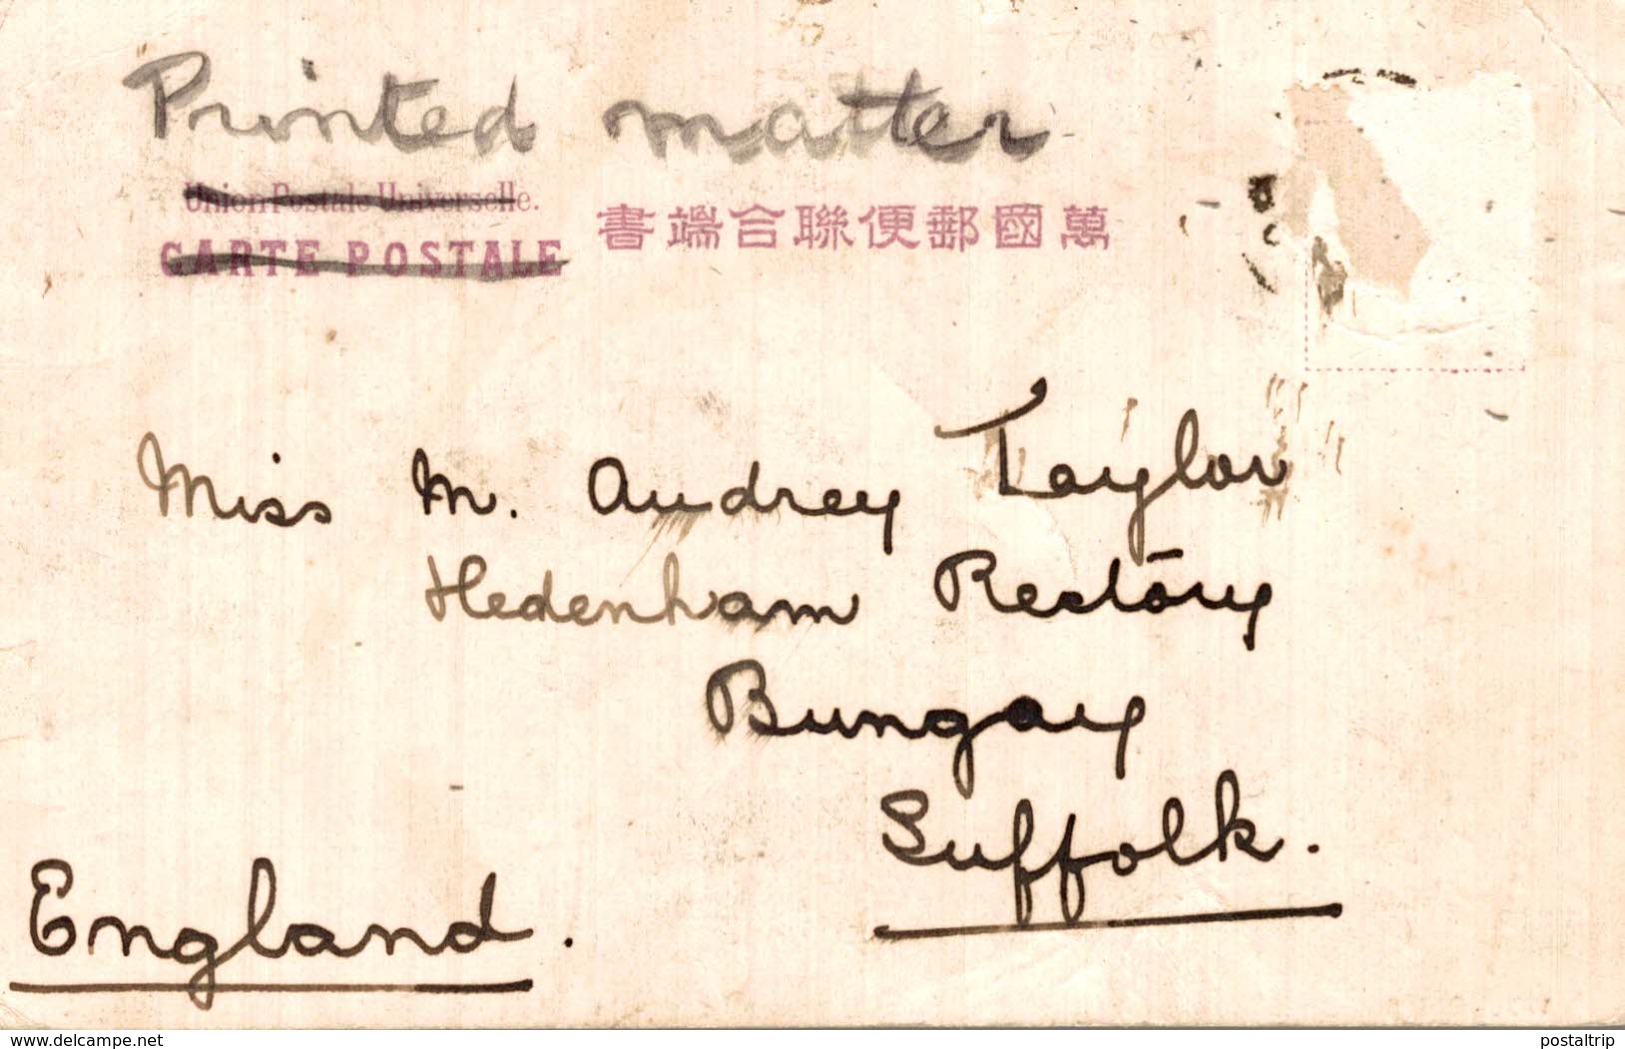 Printed matter
Union Postale Universelle.
CARTE POSTALE
書端合聯便郵國萬
Miss M. Audrey Taylor
Hedenham Rectory
Bungay
Suffolk.
England.
delcampe.net
postaltrip